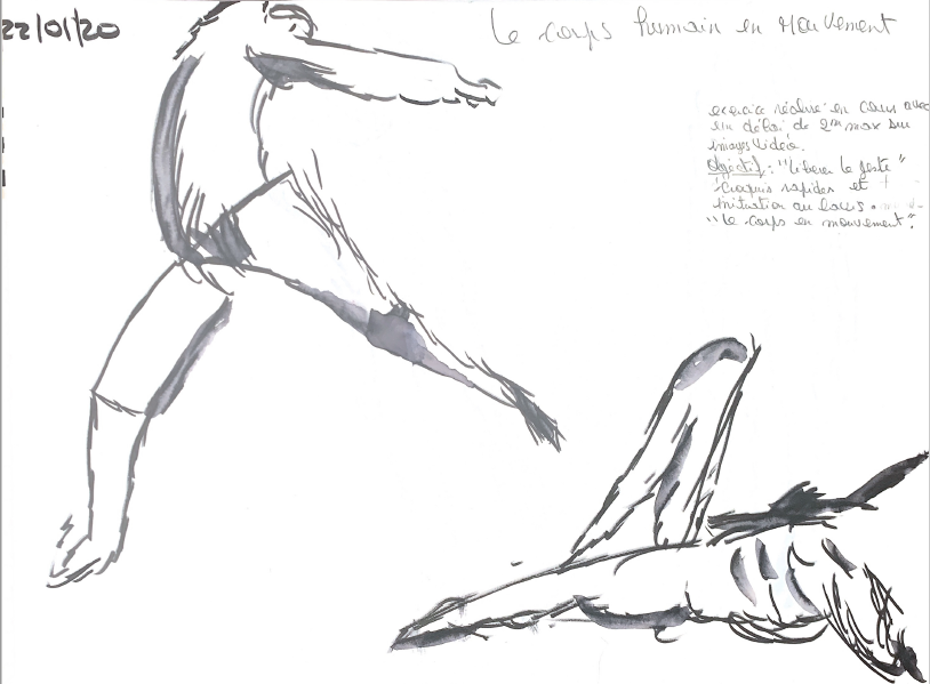 22/01/20
Le corps humain en Mouvement
exercice réalisé en cours avec
un délai de 2mn max sur
images vidéo.
Objectif : "libérer le geste"
croquis rapides et
initiation au cours
"le corps en mouvement".